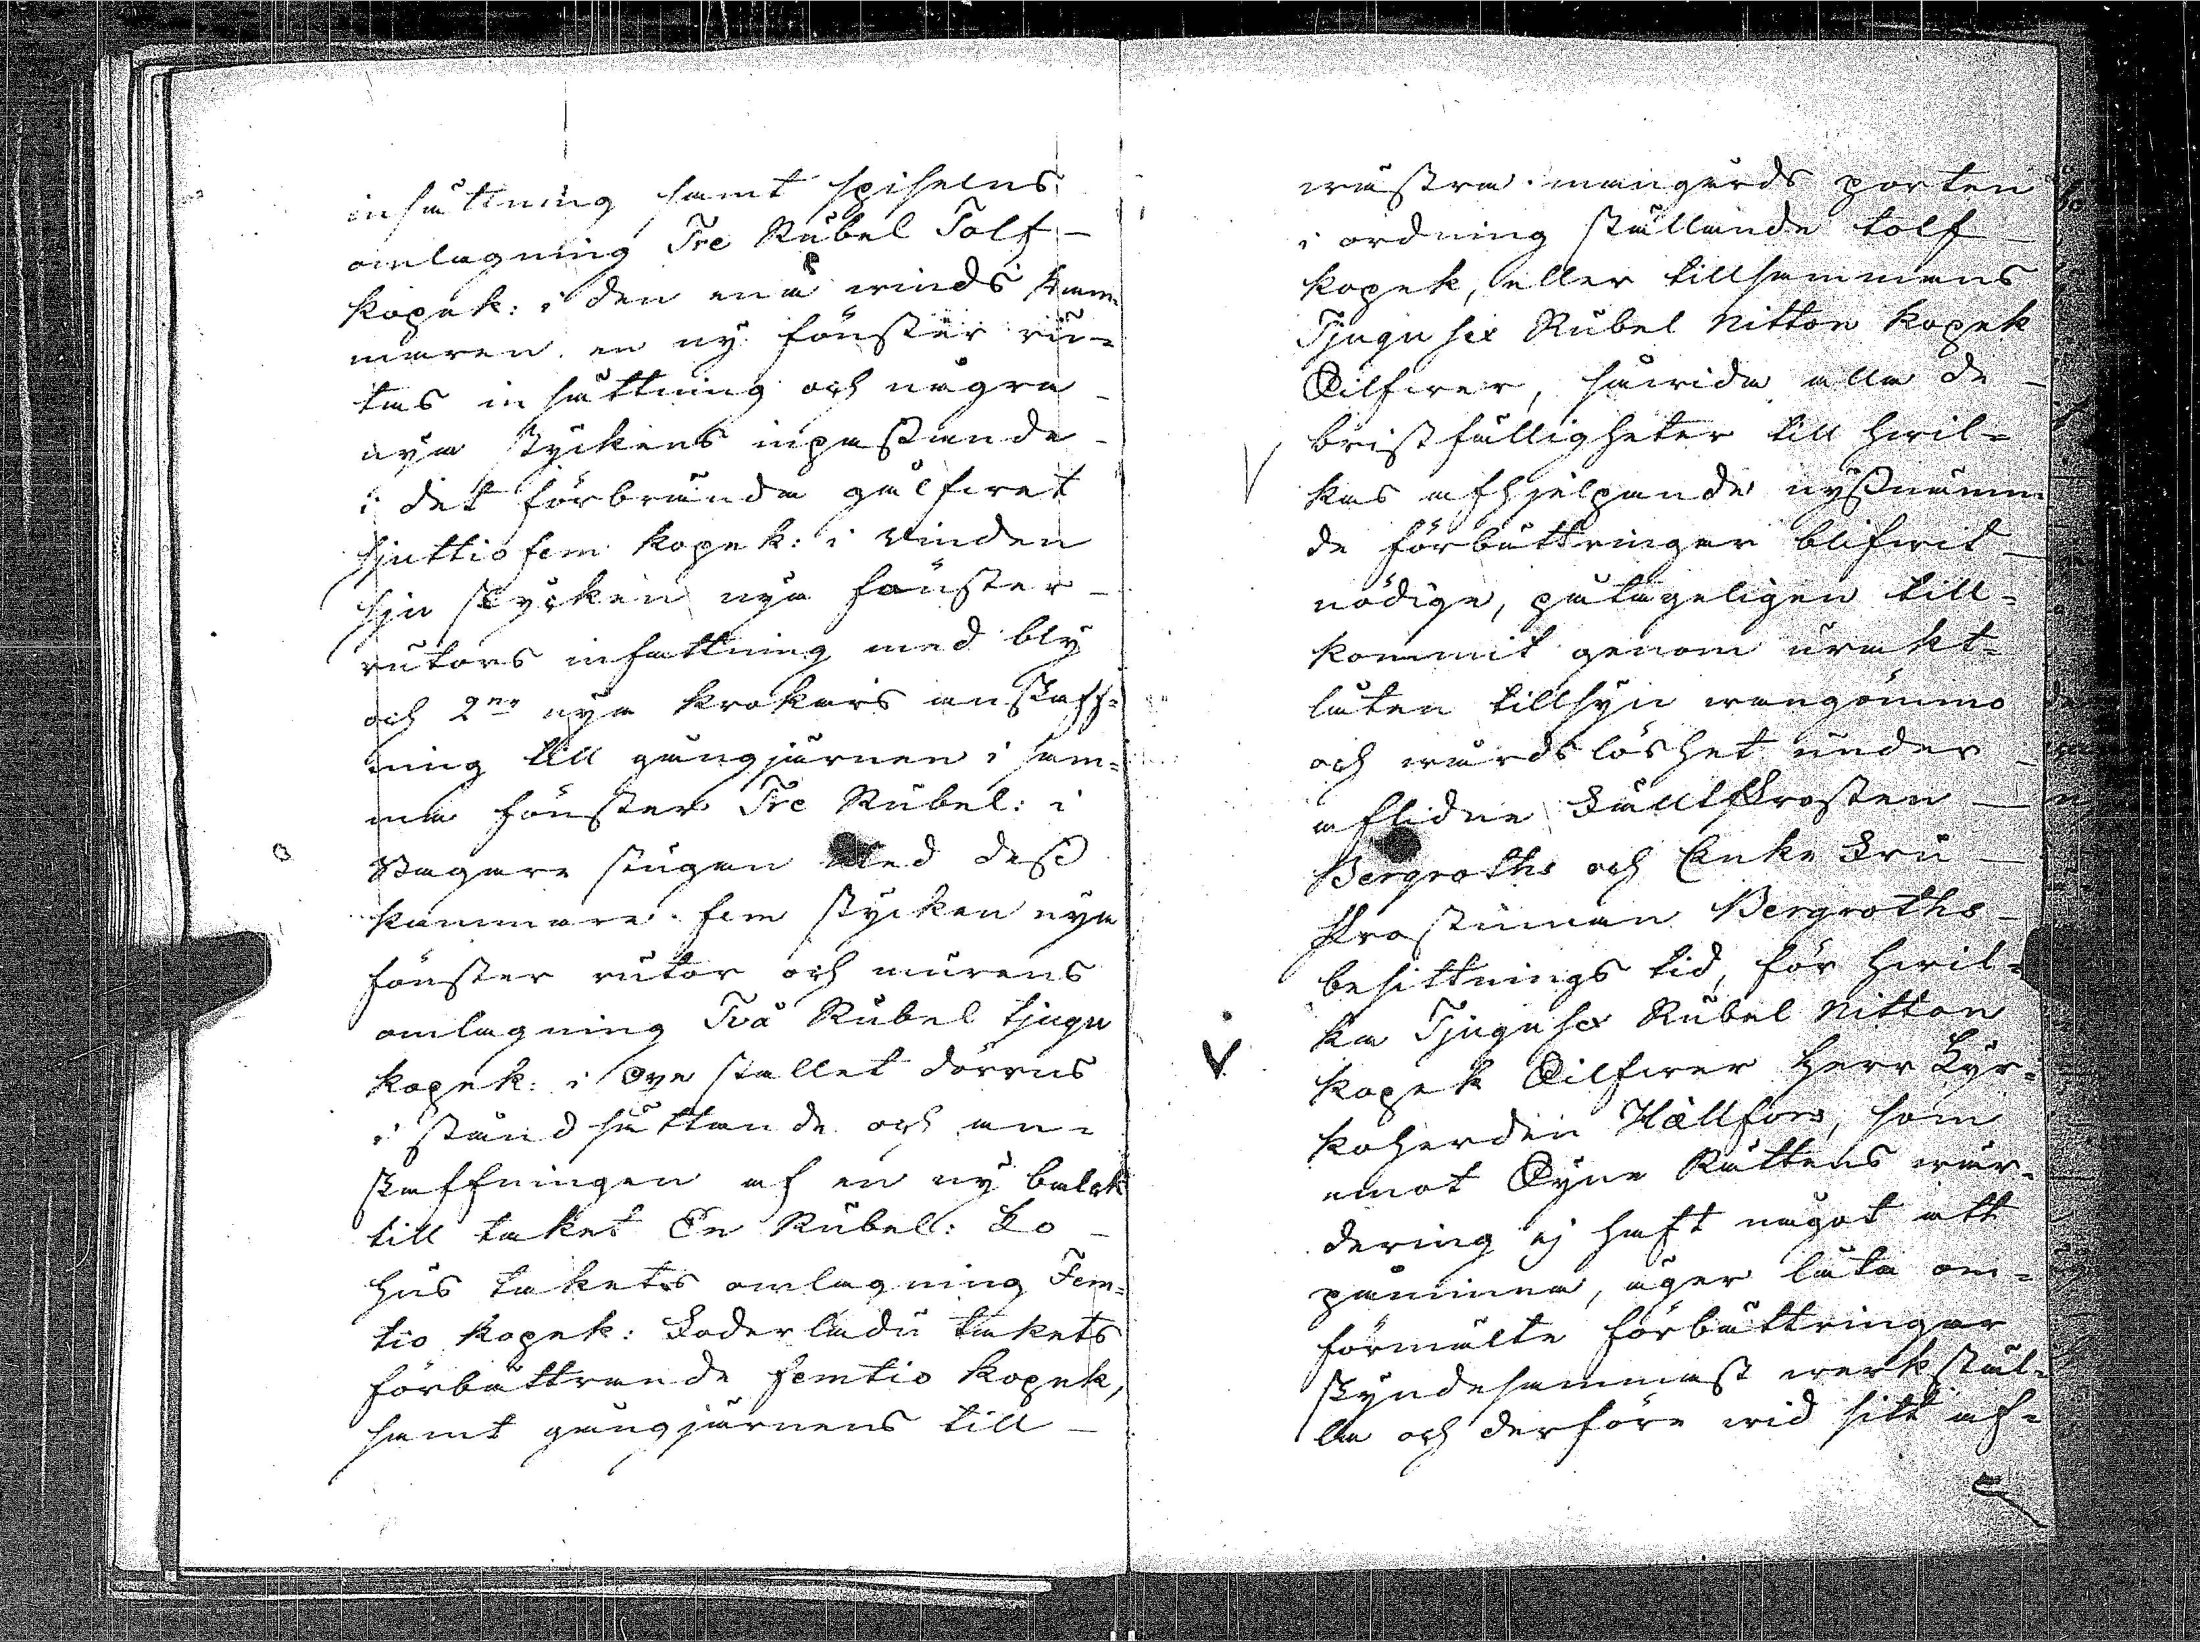 insättning samt spiselns
omlagning Tre Rubel Tolf
kopek: i den ena winds kam-
maren en ny fönster ru-
tas insättning och några
nya styckens inpassande
i det förbrända gålfwet
sjuttiofem kopek: i Vinden
sju stycken nya fönster
rutors infattning med bly
och 2ne nya krokars anskaff-
ning till gångjärnen i sam-
ma fönster Tre Rubel: i
Bagare stugan med dess
kammare fem stycken nya
fönster rutor och murens
omlagning Två Rubel tjugu
kopek: i stallet dörrns
i stånd sättande och an-
skaffningen af en ny balck
till taket En Rubel: Ko
hus takets omlagning Fem-
tio kopek: Foderladu takets
förbättrande femtio kopek,
samt gångjärnens till
wästra mangårds porten
i ordning ställande tolf
kopek, eller tillsammans
Tjugusex Rubel Nitton kopek
Silfwer, såwida alla de
bristfälligheter till hwil-
kas afhjelpande nyssnämn
de förbättringar blifwit
nödige, påtageligen till-
kommit genom urakt-
låten tillsyn wangömmo
och wårdslöshet under
aflidne Fältprosten
Bergroths och Enke Fru
Prostinnan Bergroths
besittnings tid, för hwil-
ka Tjugusex Rubel Nitton
kopek Silfwer Herr Kyr-
koherden Hällfors, som
emot Syne Rättens wär-
dering ej haft något att
påminna, äger låta om-
förmälte förbättringar
skyndesammast werkstäl-
la och derföre wid sitt af-